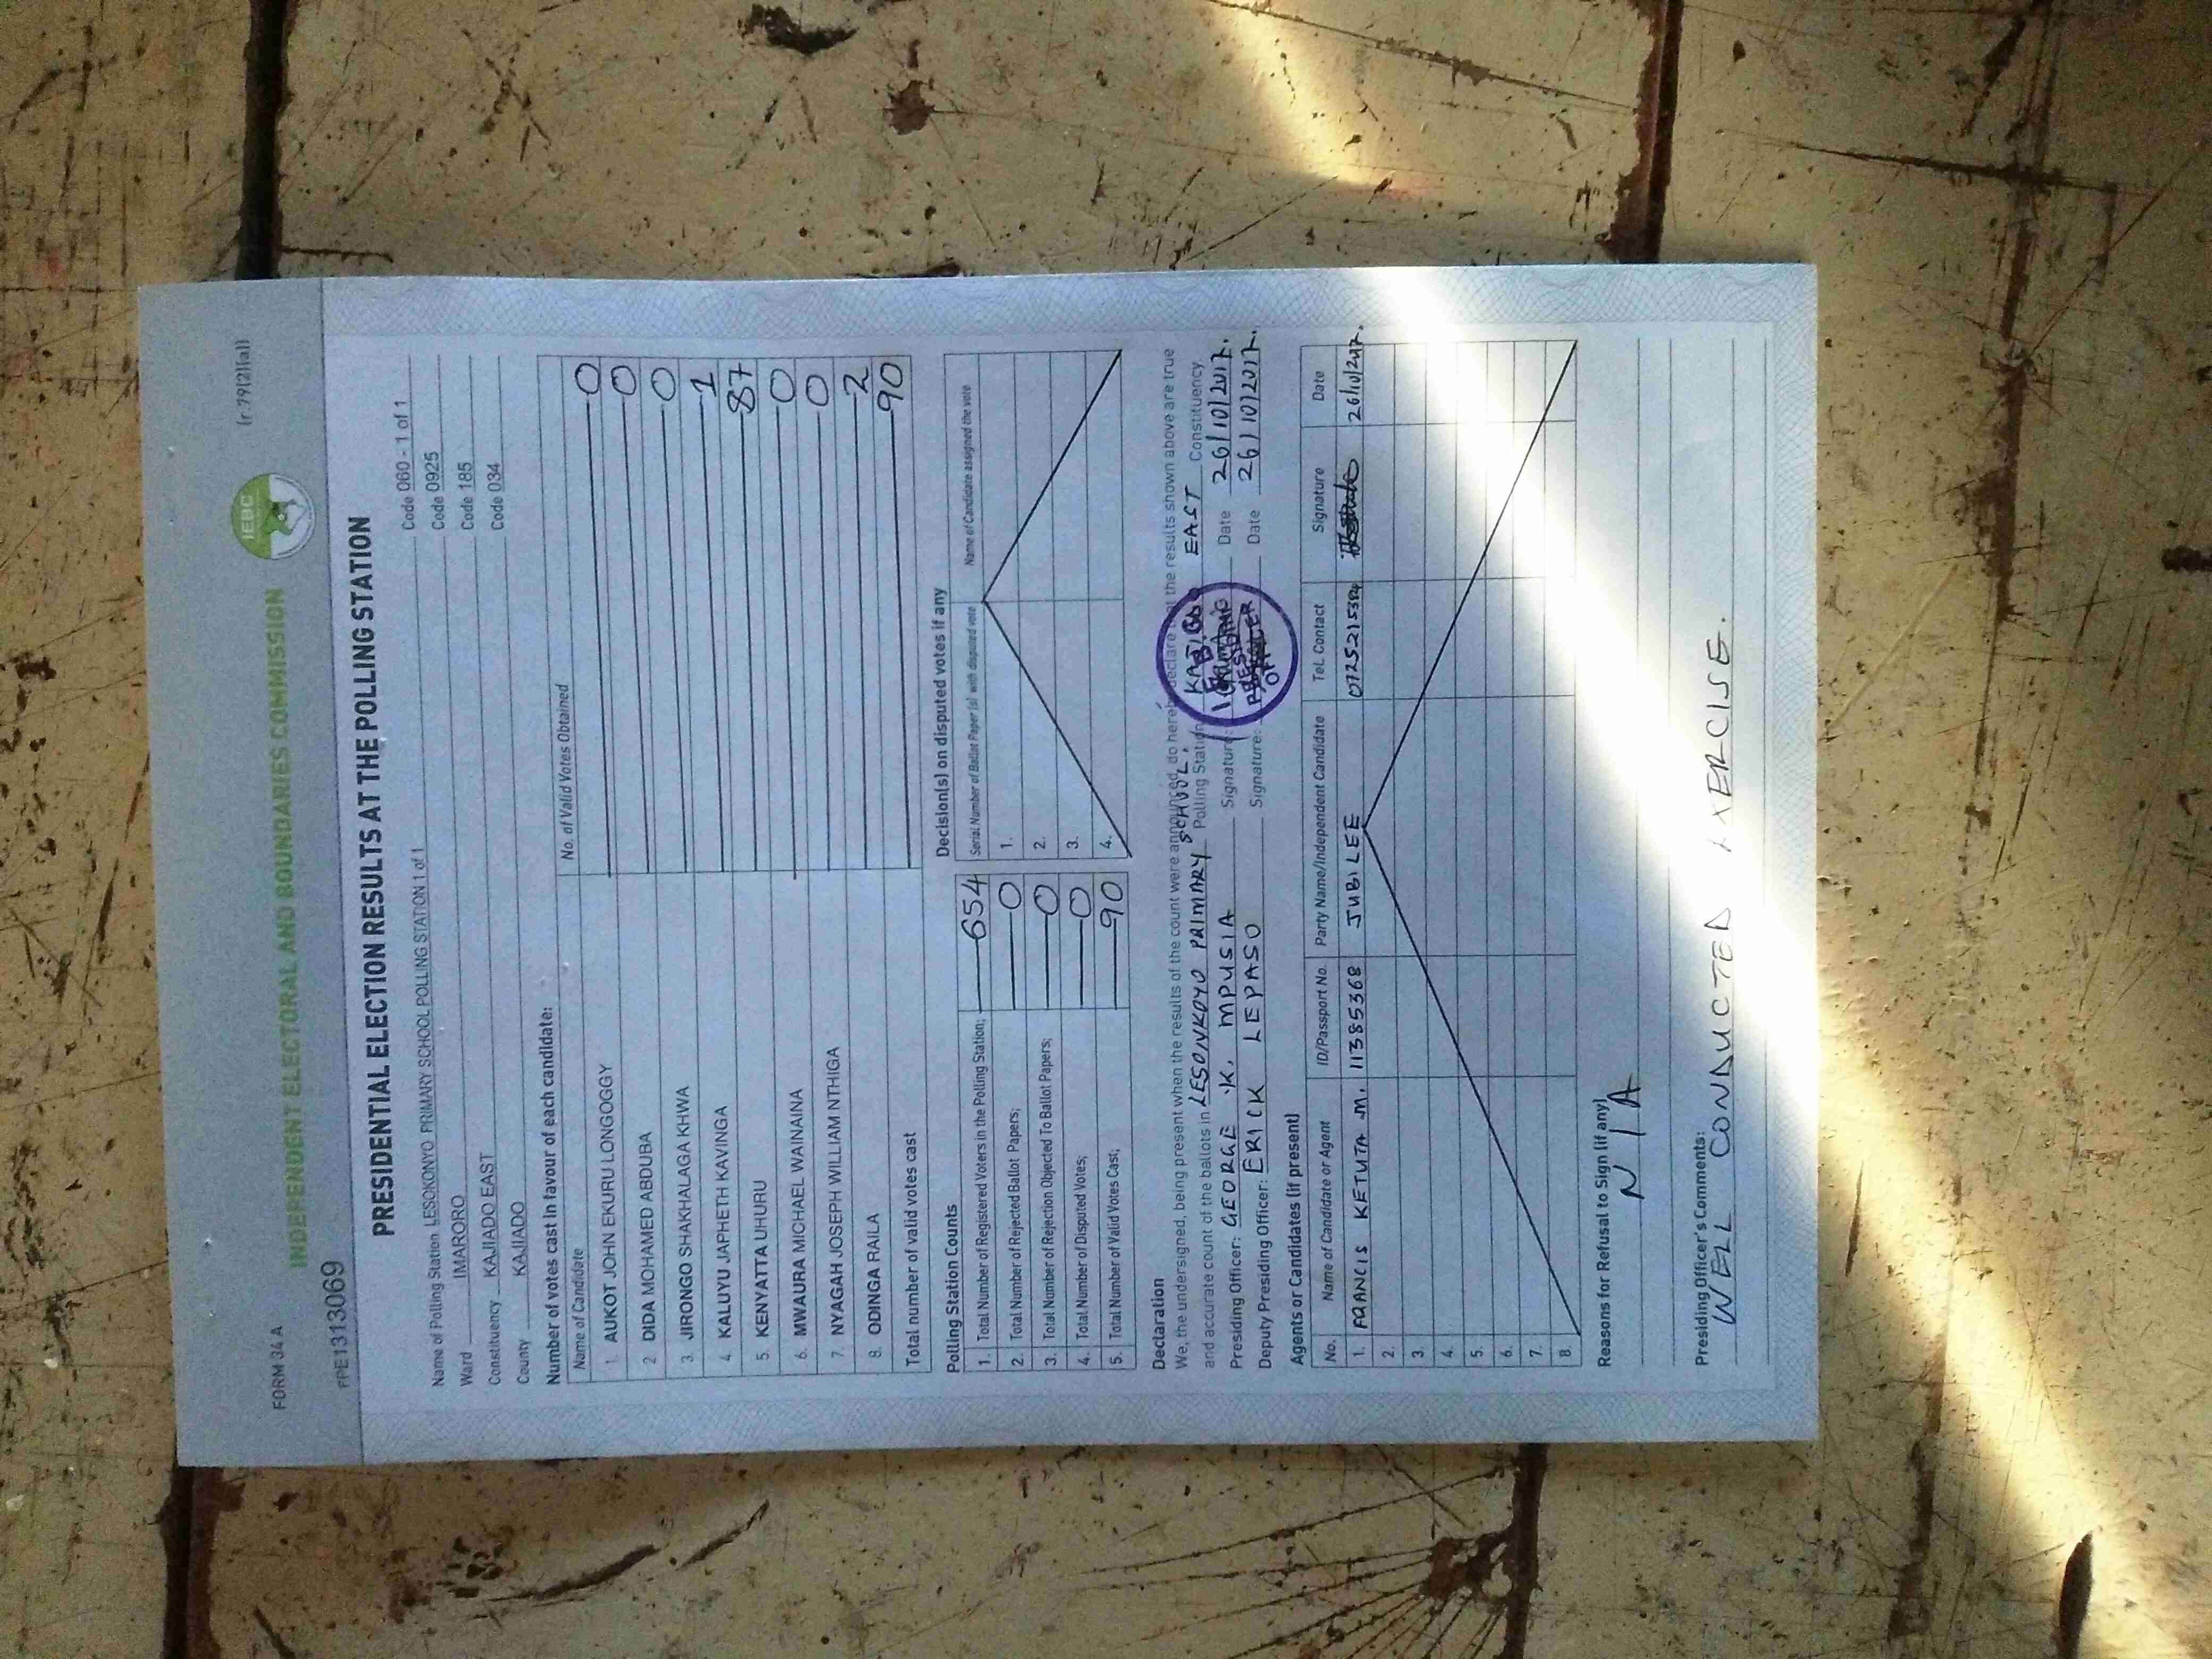 FORM 34 A
(r 79(2)(a))
INDEPENDENT ELECTORAL AND BOUNDARIES COMMISSION
IEBC
FPE1313069
PRESIDENTIAL ELECTION RESULTS AT THE POLLING STATION
Name of Polling Station LESOKONYO PRIMARY SCHOOL POLLING STATION 1 of 1 Code 060 - 1 of 1
Ward IMARORO Code 0925
Constituency KAJIADO EAST Code 185
County KAJIADO Code 034
Number of votes cast in favour of each candidate:
Name of Candidate No. of Valid Votes Obtained
1. AUKOT JOHN EKURU LONGOGGY 0
2 DIDA MOHAMED ABDUBA 0
3. JIRONGO SHAKHALAGA KHWA 0
4. KALUYU JAPHETH KAVINGA 1
5. KENYATTA UHURU 87
6. MWAURA MICHAEL WAINAINA 0
7. NYAGAH JOSEPH WILLIAM NTHIGA 0
8. ODINGA RAILA 2
Total number of valid votes cast 90
Polling Station Counts
1. Total Number of Registered Voters in the Polling Station; 654
2. Total Number of Rejected Ballot Papers; 0
3. Total Number of Rejection Objected To Ballot Papers; 0
4. Total Number of Disputed Votes; 0
5. Total Number of Valid Votes Cast; 90
Decision(s) on disputed votes if any
Serial Number of Ballot Paper (s) with disputed vote Name of Candidate assigned the vote
1.
2.
3.
4.
Declaration
We, the undersigned, being present when the results of the count were announced, do hereby declare that the results shown above are true
and accurate count of the ballots in LESONKOYO PRIMARY SCHOOL. Polling Station KAJIADO EAST Constituency.
Presiding Officer: GEORGE .K. MPUSIA Signature: Date 26/10/2017.
Deputy Presiding Officer: ERICK LEPASO Signature: Date 26/10/2017.
PRESIDING OFFICER
Agents or Candidates (if present)
No. Name of Candidate or Agent ID/Passport No. Party Name/Independent Candidate Tel. Contact Signature Date
1. FRANCIS KETUTA .M. 11385368 JUBILEE 0725215384 26/10/2017.
2.
3.
4.
5.
6.
7.
8.
Reasons for Refusal to Sign (if any)
N/A
Presiding Officer's Comments:
WELL CONDUCTED EXERCISE.